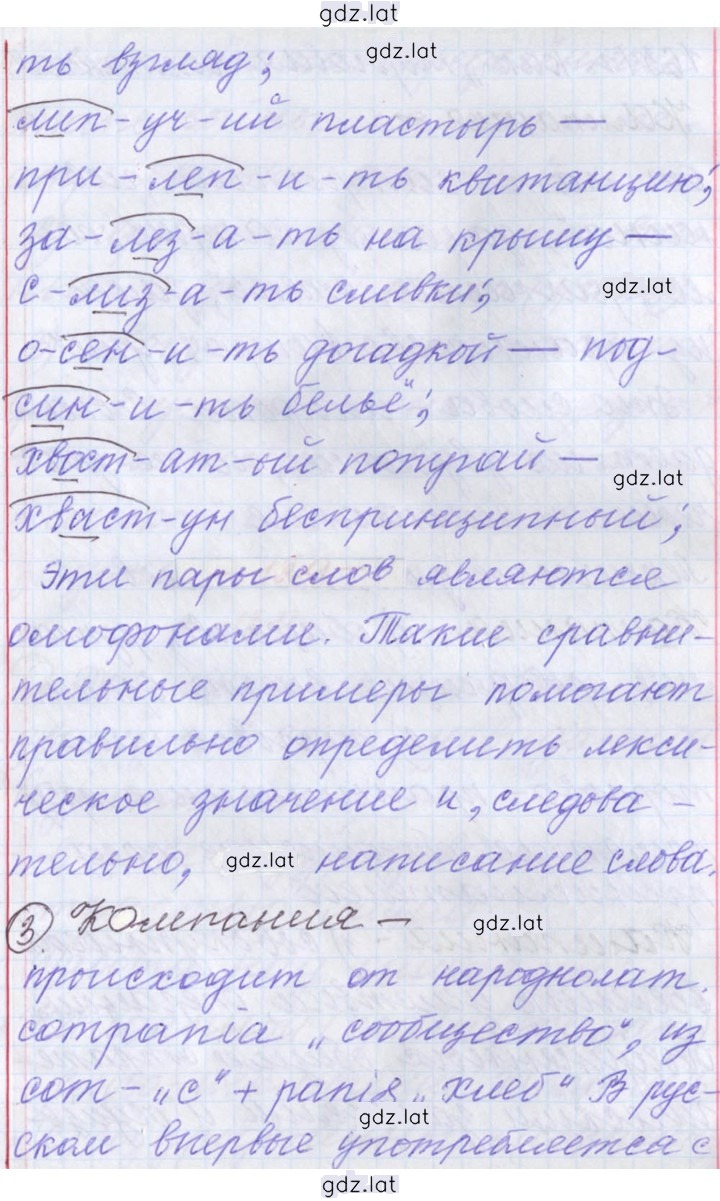 gdz.lat
ть взгляд;
gdz.lat
лип-уч-ий пластырь —
при-леп-и-ть квитанцию;
за-лез-а-ть на крышу —
с-лиз-а-ть сливки;
gdz.lat
о-сен-и-ть догадкой — под-
син-и-ть бельё";
хвост-ат-ый попугай —
gdz.lat
хваст-ун беспринципный;
Эти пары слов являются
омофонами. Такие сравни-
тельные примеры помогают
правильно определить лекси-
ческое значение и, следова-
тельно, gdz.lat написание слова.
③ Компания — gdz.lat
происходит от народнолат.
compania „сообщество", из
com - „с" + panis „хлеб" В рус-
gdz.lat
ском впервые употребляется с
gdz.lat